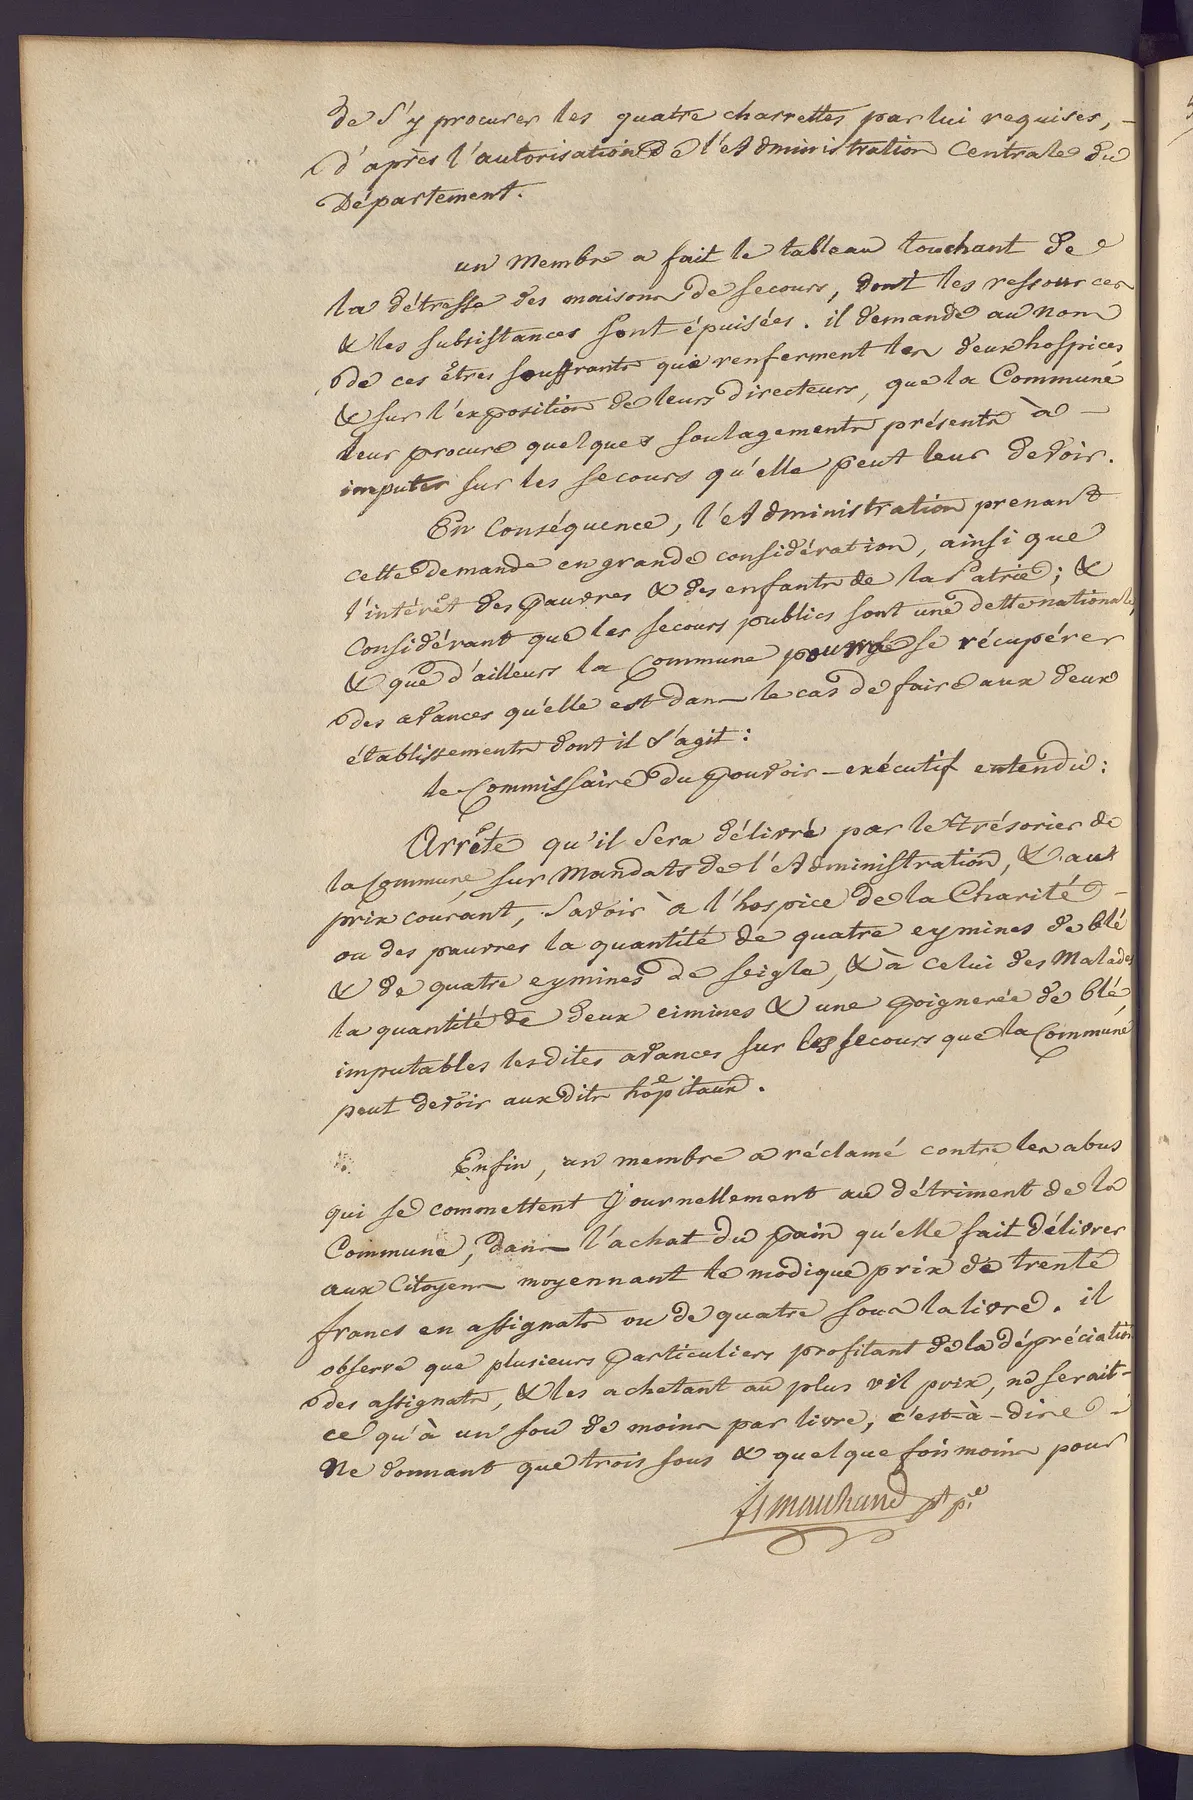 de s'y procurer les quatre charrettes par lui requises, -
d'après l'autorisation de l'Administration Centrale du
Département.
un Membre a fait le tableau touchant de
la détresse des maisons de secours, dont les ressources
& les subsistances sont épuisées. il demande au nom
de ces êtres souffrants que renferment les deux hospices
& sur l'exposition de leurs directeurs, que la Commune
leur procure quelques soulagements présents à -
imputer sur les secours qu'elle peut leur devoir.
En Conséquence, l'Administration prenant
cette demande en grande considération, ainsi que
l'intérêt des pauvres & des enfants de la Patrie; &
Considérant que les secours publics sont une dette nationale,
& que d'ailleurs la Commune pourra se récupérer
des avances qu'elle est dans le cas de faire aux deux
établissements dont il s'agit :
le Commissaire du pouvoir-exécutif entendu :
Arrête qu'il sera délivré par le trésorier de
la Commune, sur Mandats de l'Administration, & au
prix courant, Savoir à l'hospice de la Charité -
ou des pauvres la quantité de quatre eymines de blé
& de quatre eymines de seigle, & à celui des Malades
la quantité de deux eimines & une poignerée de blé,
imputables lesdites avances sur les secours que la Commune
peut devoir auxdits hopitaux.
Enfin, un membre a réclamé contre les abus
qui se commettent journellement au détriment de la
Commune, dans l'achat du pain qu'elle fait délivrer
aux Citoyens moyennant le modique prix de trente
francs en assignats ou de quatre sous la livre. il
observe que plusieurs particuliers profitant de la dépréciation
des assignats, & les achetant au plus vil prix, ne serait-
ce qu'à un sou de moins par livre, c'est-à-dire -
Ne donnant que trois sous & quelque fois moins pour
marchand pt pre